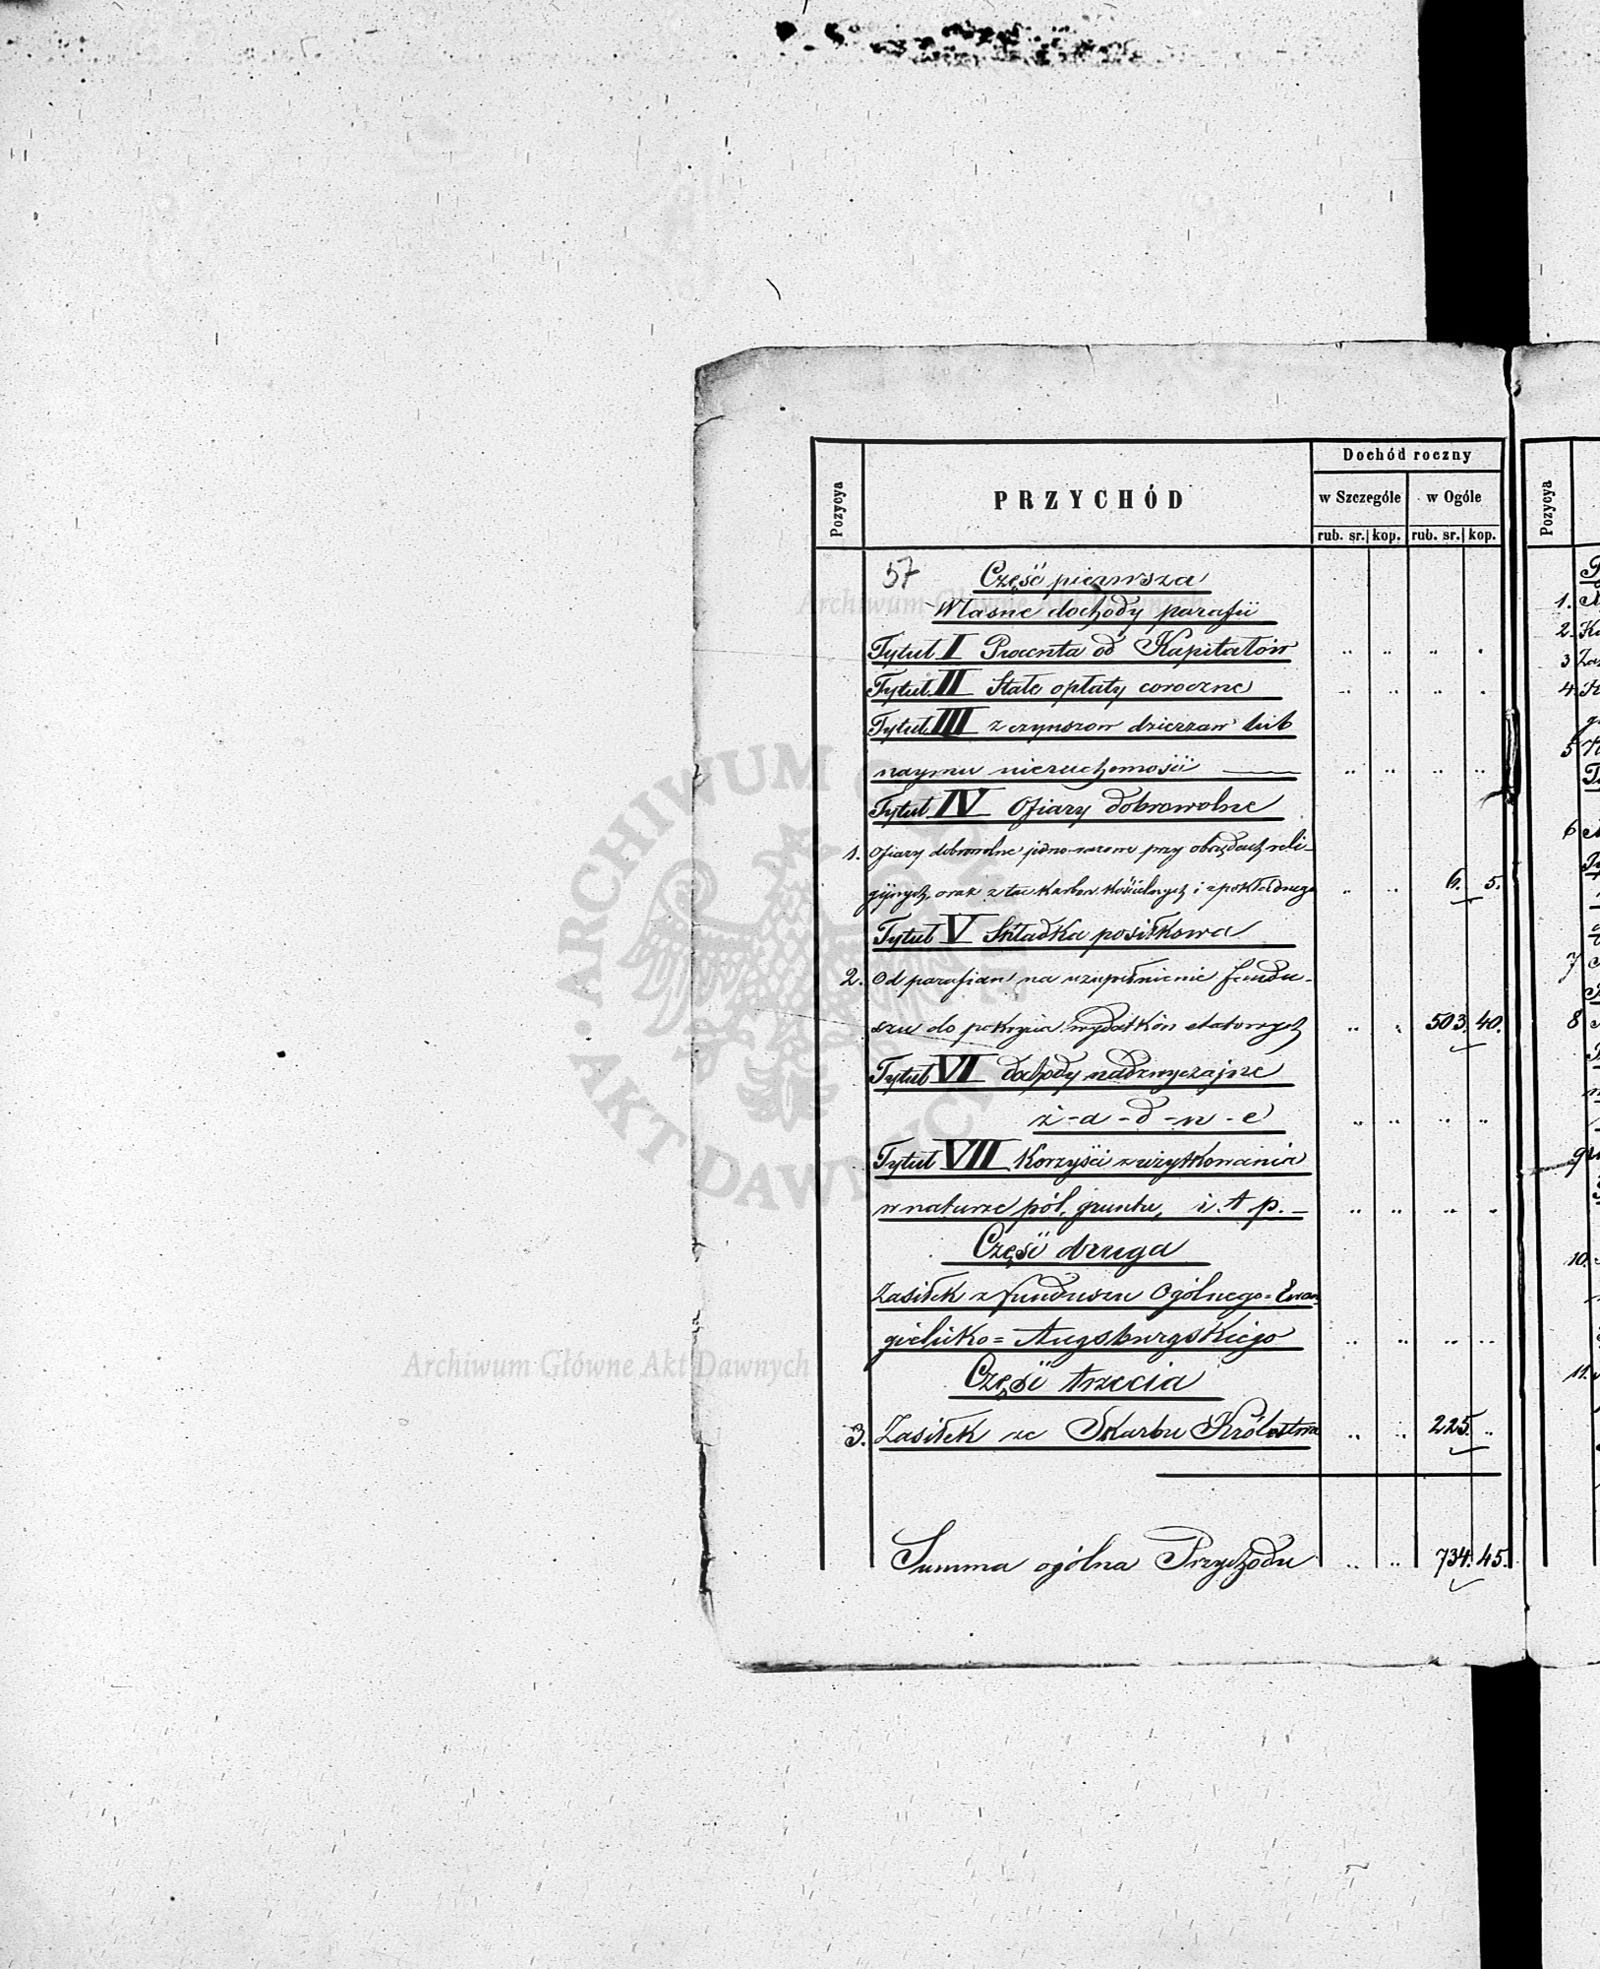 Dochód roczny
Pozycya PRZYCHÓD w Szczególe w Ogóle Pozycya
rub. sr. kop. rub. sr. kop.
57 Część pierwsza
Własne dochody parafii
Tytuł I Procenta od Kapitałów
Tytuł II Stałe opłaty coroczne
Tytuł III z czynszow dzierzaw lub
naymu nieruchomości
Tytuł IV Ofiary dobrowolne
1. Ofiary dobrowolne jedno-razowe przy obrzędach reli-
gijnych, oraz z tac karbon kościelnych i z pokładnego 6. 5.
Tytuł V Składka posiłkowa
2. Od parafian na uzupełnienie fundu-
szu do pokrycia wydatków etatowych 503. 40.
Tytuł VI dochody nadzwyczajne
ż-a-d-n-e
Tytuł VII Korzyści z użytkowania
w naturze pól, gruntu, i. t. p.
Część druga
Zasiłek z funduszu Ogólnego = Ewan
gielicko = Augsburgskiego
Część trzecia
3. Zasiłek ze Skarbu Królestwa 225.
Summa ogólna Przychodu 734. 45.
1.
2.
3
4.
5
6
7
8
9
10.
11.
ARCHIWUM GŁÓWNE AKT DAWNYCH
Archiwum Główne Akt Dawnych
Archiwum Główne Akt Dawnych